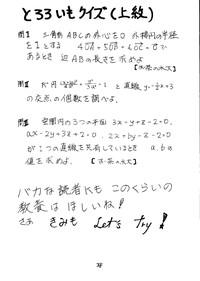 とろろいもクイズ(上級)
問I 三角形ABCの外心をO 外接円の半径
を1とする 4OA+5OB+6OC=0で
あるとき 辺ABの長さを求めよ
【お茶の水大】
問II だ円 と直線 y=-1/2x+3
の交点の個数を調べよ.
問III 空間内の3つの平面 3x-y+z-2=0,
ax-2y+3z+2=0, 2x+by-z-2=0
が1つの直線を共有しているとき a,bの
値を求めよ. 【お茶の水大】
バカな読者にも このくらいの
教養は ほしいね!
さあ きみも Let's Try!